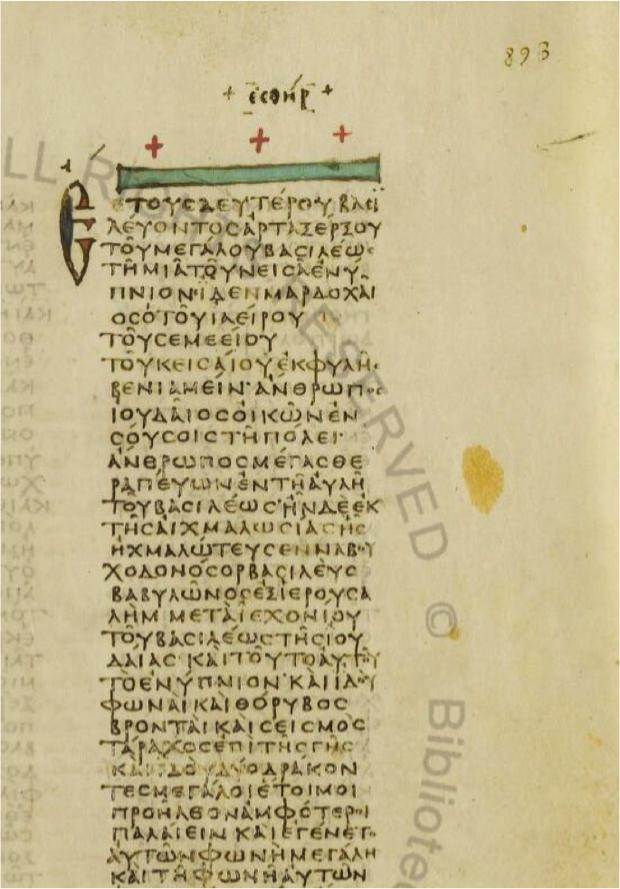 893
+ ΕϹΘΗΡ +
ΕΤΟΥϹΔΕΥΤΕΡΟΥΒΑϹΙ
ΛΕΥΟΝΤΟϹΑΡΤΑΞΕΡΞΟΥ
ΤΟΥΜΕΓΑΛΟΥΒΑϹΙΛΕΩϹ
ΤΗΜΙΑΤΟΥΝΕΙϹΑΕΝΥ
ΠΝΙΟΝΙΔΕΝΜΑΡΔΟΧΑΙ
ΟϹΟΤΟΥΙΑΕΙΡΟΥ
ΤΟΥϹΕΜΕΕΙΟΥ
ΤΟΥΚΕΙϹΑΙΟΥΕΚΦΥΛΗϹ
ΒΕΝΙΑΜΕΙΝ·ΑΝΘΡΩΠΟϹ
ΙΟΥΔΑΙΟϹΟΙΚΩΝΕΝ
ϹΟΥϹΟΙϹΤΗΠΟΛΕΙ·
ΑΝΘΡΩΠΟϹΜΕΓΑϹΘΕ
ΡΑΠΕΥΩΝΕΝΤΗΑΥΛΗ
ΤΟΥΒΑϹΙΛΕΩϹ·ΗΝΔΕΕΚ
ΤΗϹΑΙΧΜΑΛΩϹΙΑϹΗϹ
ΗΧΜΑΛΩΤΕΥϹΕΝΝΑΒΟΥ
ΧΟΔΟΝΟϹΟΡΒΑϹΙΛΕΥϹ
ΒΑΒΥΛΩΝΟϹΕΞΙΕΡΟΥϹΑ
ΛΗΜ ΜΕΤΑΙΕΧΟΝΙΟΥ
ΤΟΥΒΑϹΙΛΕΩϹΤΗϹΙΟΥ
ΔΑΙΑϹ ΚΑΙΤΟΥΤΟΑΥΤΟΥ
ΤΟΕΝΥΠΝΙΟΝ·ΚΑΙΙΔΟΥ
ΦΩΝΑΙΚΑΙΘΟΡΥΒΟϹ
ΒΡΟΝΤΑΙΚΑΙϹΕΙϹΜΟϹ
ΤΑΡΑΧΟϹΕΠΙΤΗϹΓΗϹ
ΚΑΙΙΔΟΥΔΥΟΔΡΑΚΟΝ
ΤΕϹΜΕΓΑΛΟΙΕΤΟΙΜΟΙ
ΠΡΟΗΛΘΟΝΑΜΦΟΤΕΡΟΙ
ΠΑΛΑΙΕΙΝ ΚΑΙΕΓΕΝΕΤΟ
ΑΥΤΩΝΦΩΝΗΜΕΓΑΛΗ
ΚΑΙΤΗΦΩΝΗΑΥΤΩΝ